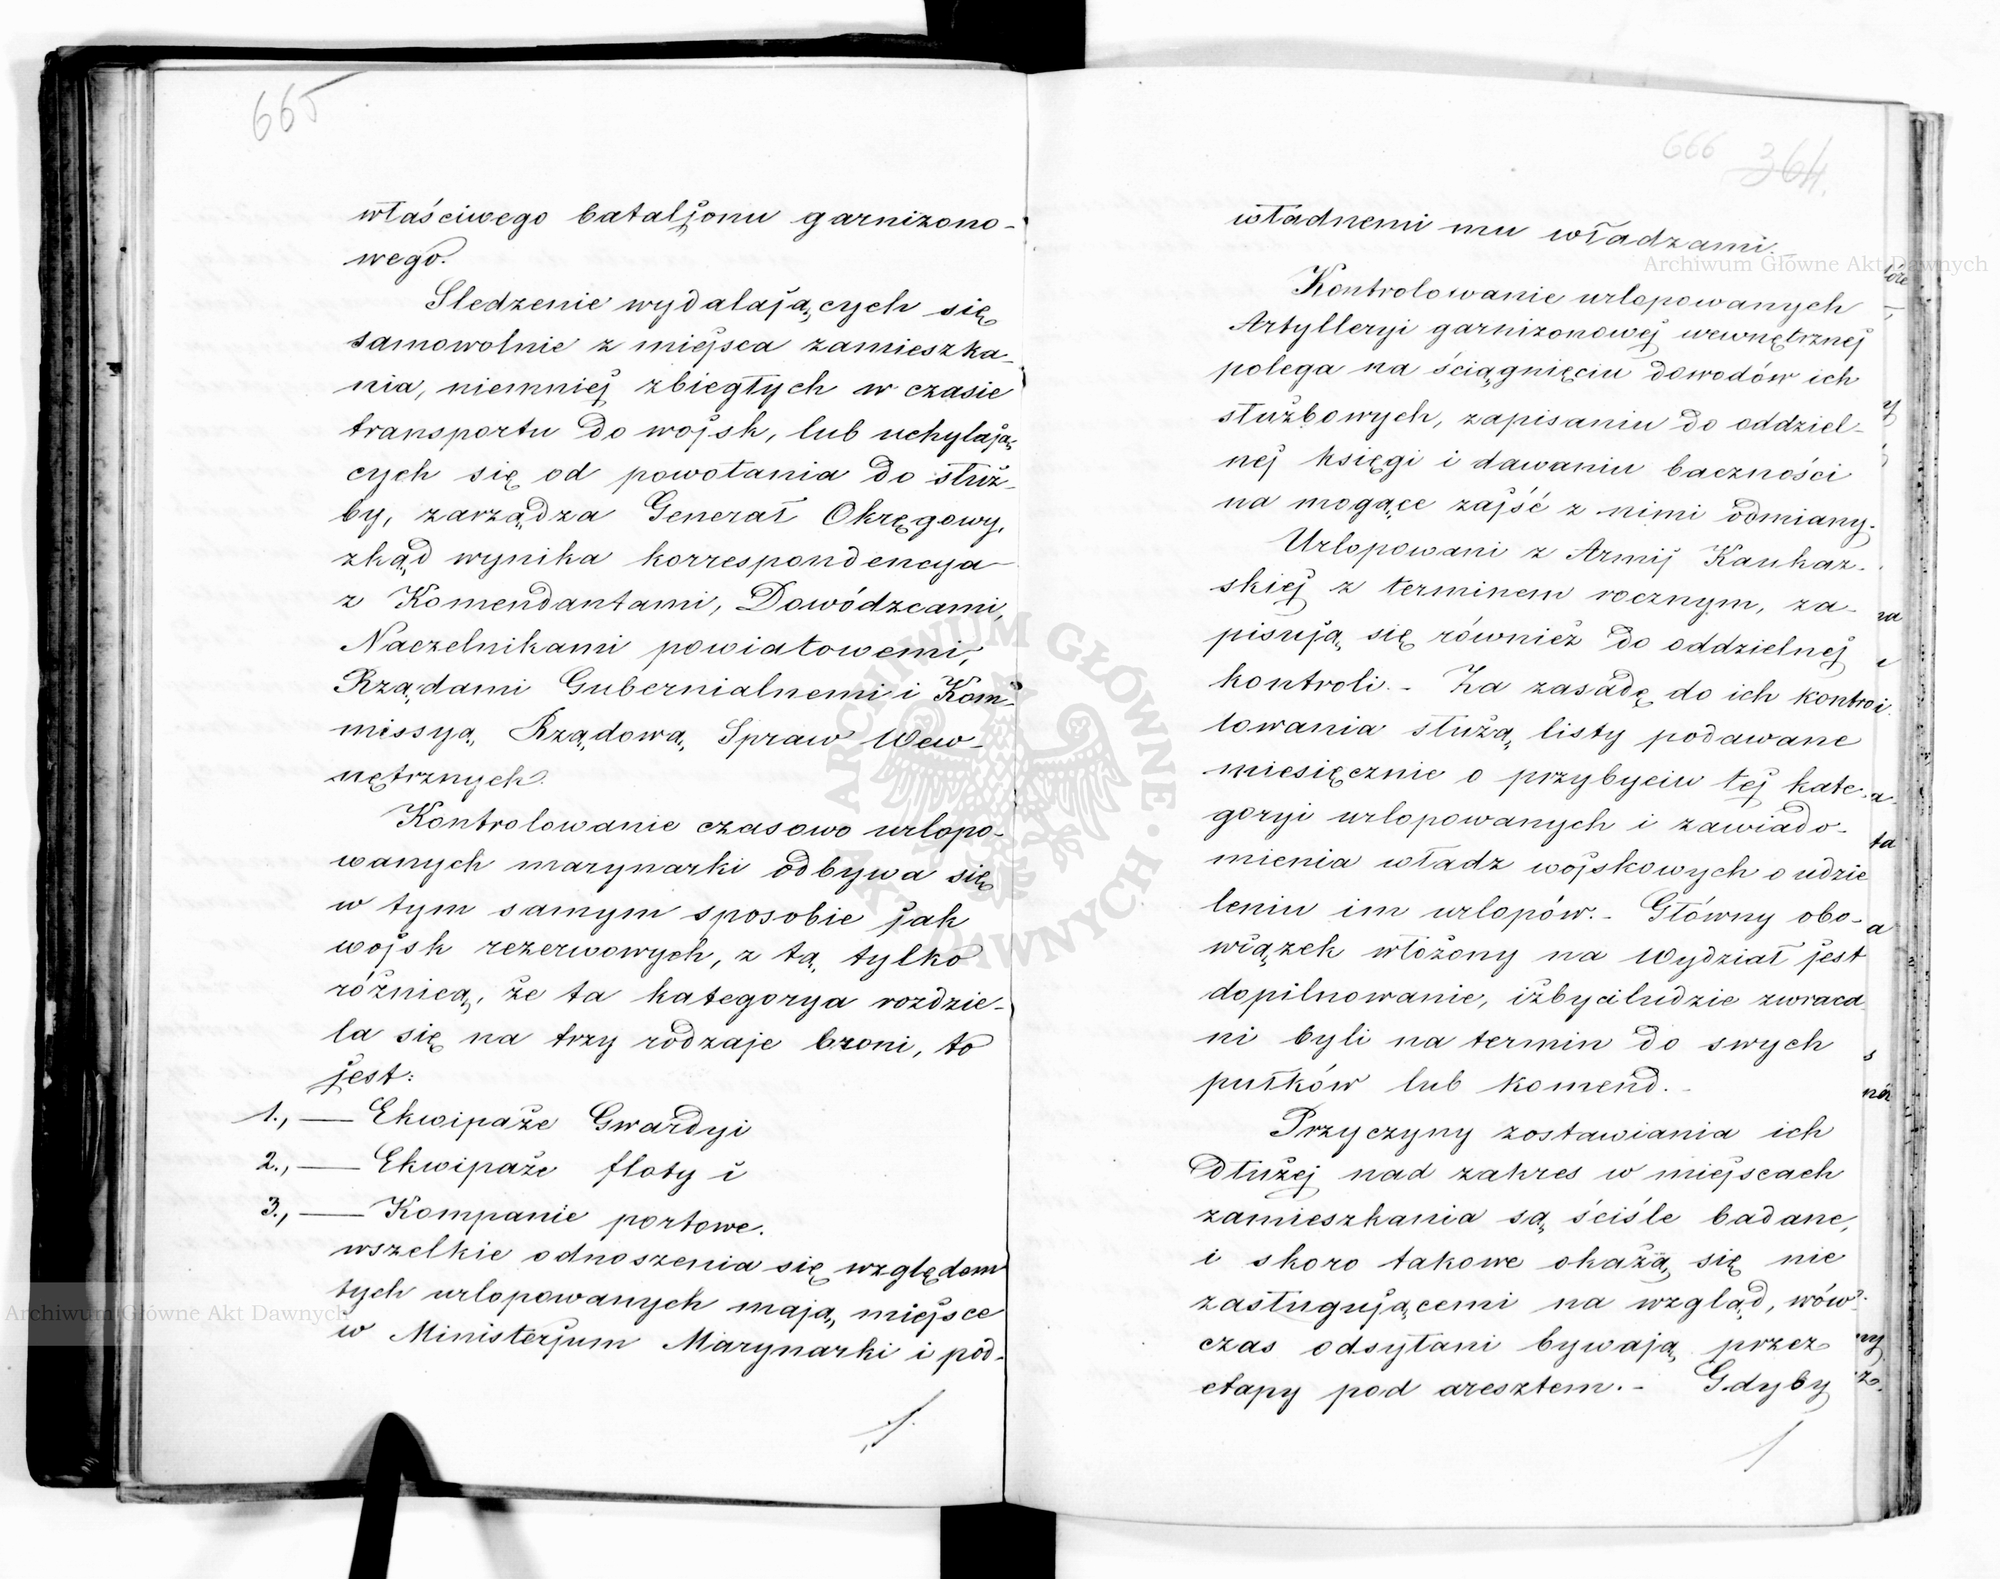 665
właściwego bataljonu garnizono-
wego.
Sledzenie wydalających się
samowolnie z miejsca zamieszka-
nia, niemniej zbiegłych w czasie
transportu do wojsk, lub uchylają-
cych się od powołania do służ-
by, zarządza Generał Okręgowy,
zkąd wynika korrespondencya
z Komendantami, Dowódzcami,
Naczelnikami powiatowemi,
Rządami Gubernialnemi i Kom-
missyą Rządową Spraw Wew-
nętrznych.
Kontrolowanie czasowo urlopo-
wanych marynarki odbywa się
w tym samym sposobie jak
wojsk rezerwowych, z tą tylko
różnicą, że ta kategorya rozdzie-
la się na trzy rodzaje broni, to
jest:
1., — Ekwipaże Gwardyi
2., — Ekwipaże floty i
3., — Kompanie portowe.
wszelkie odnoszenia się względem
tych urlopowanych mają miejsce
w Ministerjum Marynarki i pod-
666 364.
władnemi mu władzami.-
Kontrolowanie urlopowanych
Artylleryi garnizonowej wewnętrznej
polega na ściągnięciu dowodów ich
służbowych, zapisaniu do oddziel-
nej księgi i dawaniu baczności
na mogące zajść z nimi odmiany.
Urlopowani z Armij Kaukaz-
skiej z terminem rocznym, za-
pisują się również do oddzielnej
kontroli.- Za zasadę do ich kontro
lowania służą listy podawane
miesięcznie o przybyciu tej kate-
goryi urlopowanych i zawiado-
mienia władz wojskowych o udzie
leniu im urlopów.- Główny obo-
wiązek włożony na Wydział jest
dopilnowanie, iżby ci ludzie zwraca
ni byli na termin do swych
pułków lub komend.-
Przyczyny zostawiania ich
dłużej nad zakres w miejscach
zamieszkania są ściśle badane,
i skoro takowe okażą się nie
zasługującemi na wzgląd, wów-
czas odsyłani bywają przez
etapy pod aresztem.- Gdyby
Archiwum Główne Akt Dawnych
Archiwum Główne Akt Dawnych
ARCHIWUM GŁÓWNE AKT DAWNYCH